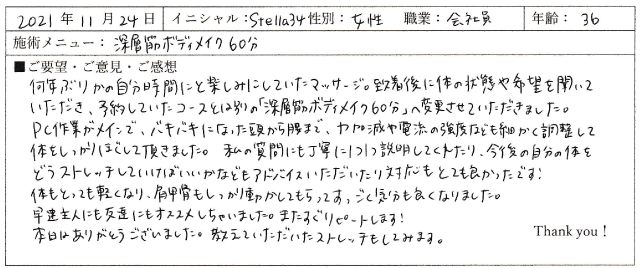 2021年11月24日 イニシャル：Stella34 性別：女性 職業：会社員 年齢：36
施術メニュー：深層筋ボディメイク60分
■ご要望・ご意見・ご感想
何年ぶりかの自分時間にと楽しみにしていたマッサージ。到着後に体の状態や希望を聞いて
いただき、予約していたコースとは別の「深層筋ボディメイク60分」へ変更させていただきました。
PC作業がメインで、バキバキになった頭から腰まで、力加減や電流の強度なども細かく調整して
体をしっかりほぐして頂きました。私の質問にも丁寧に1つ1つ説明してくれたり、今後の自分の体を
どうストレッチしていけばいいかなどもアドバイスいただいたり対応もとても良かったです！
体もとっても軽くなり、肩甲骨もしっかり動かしてもらってすっごく気分も良くなりました。
早速主人にも友達にもオススメしちゃいました。またすぐリピートします！
本日はありがとうございました。教えていただいたストレッチもしてみます。
Thank you！